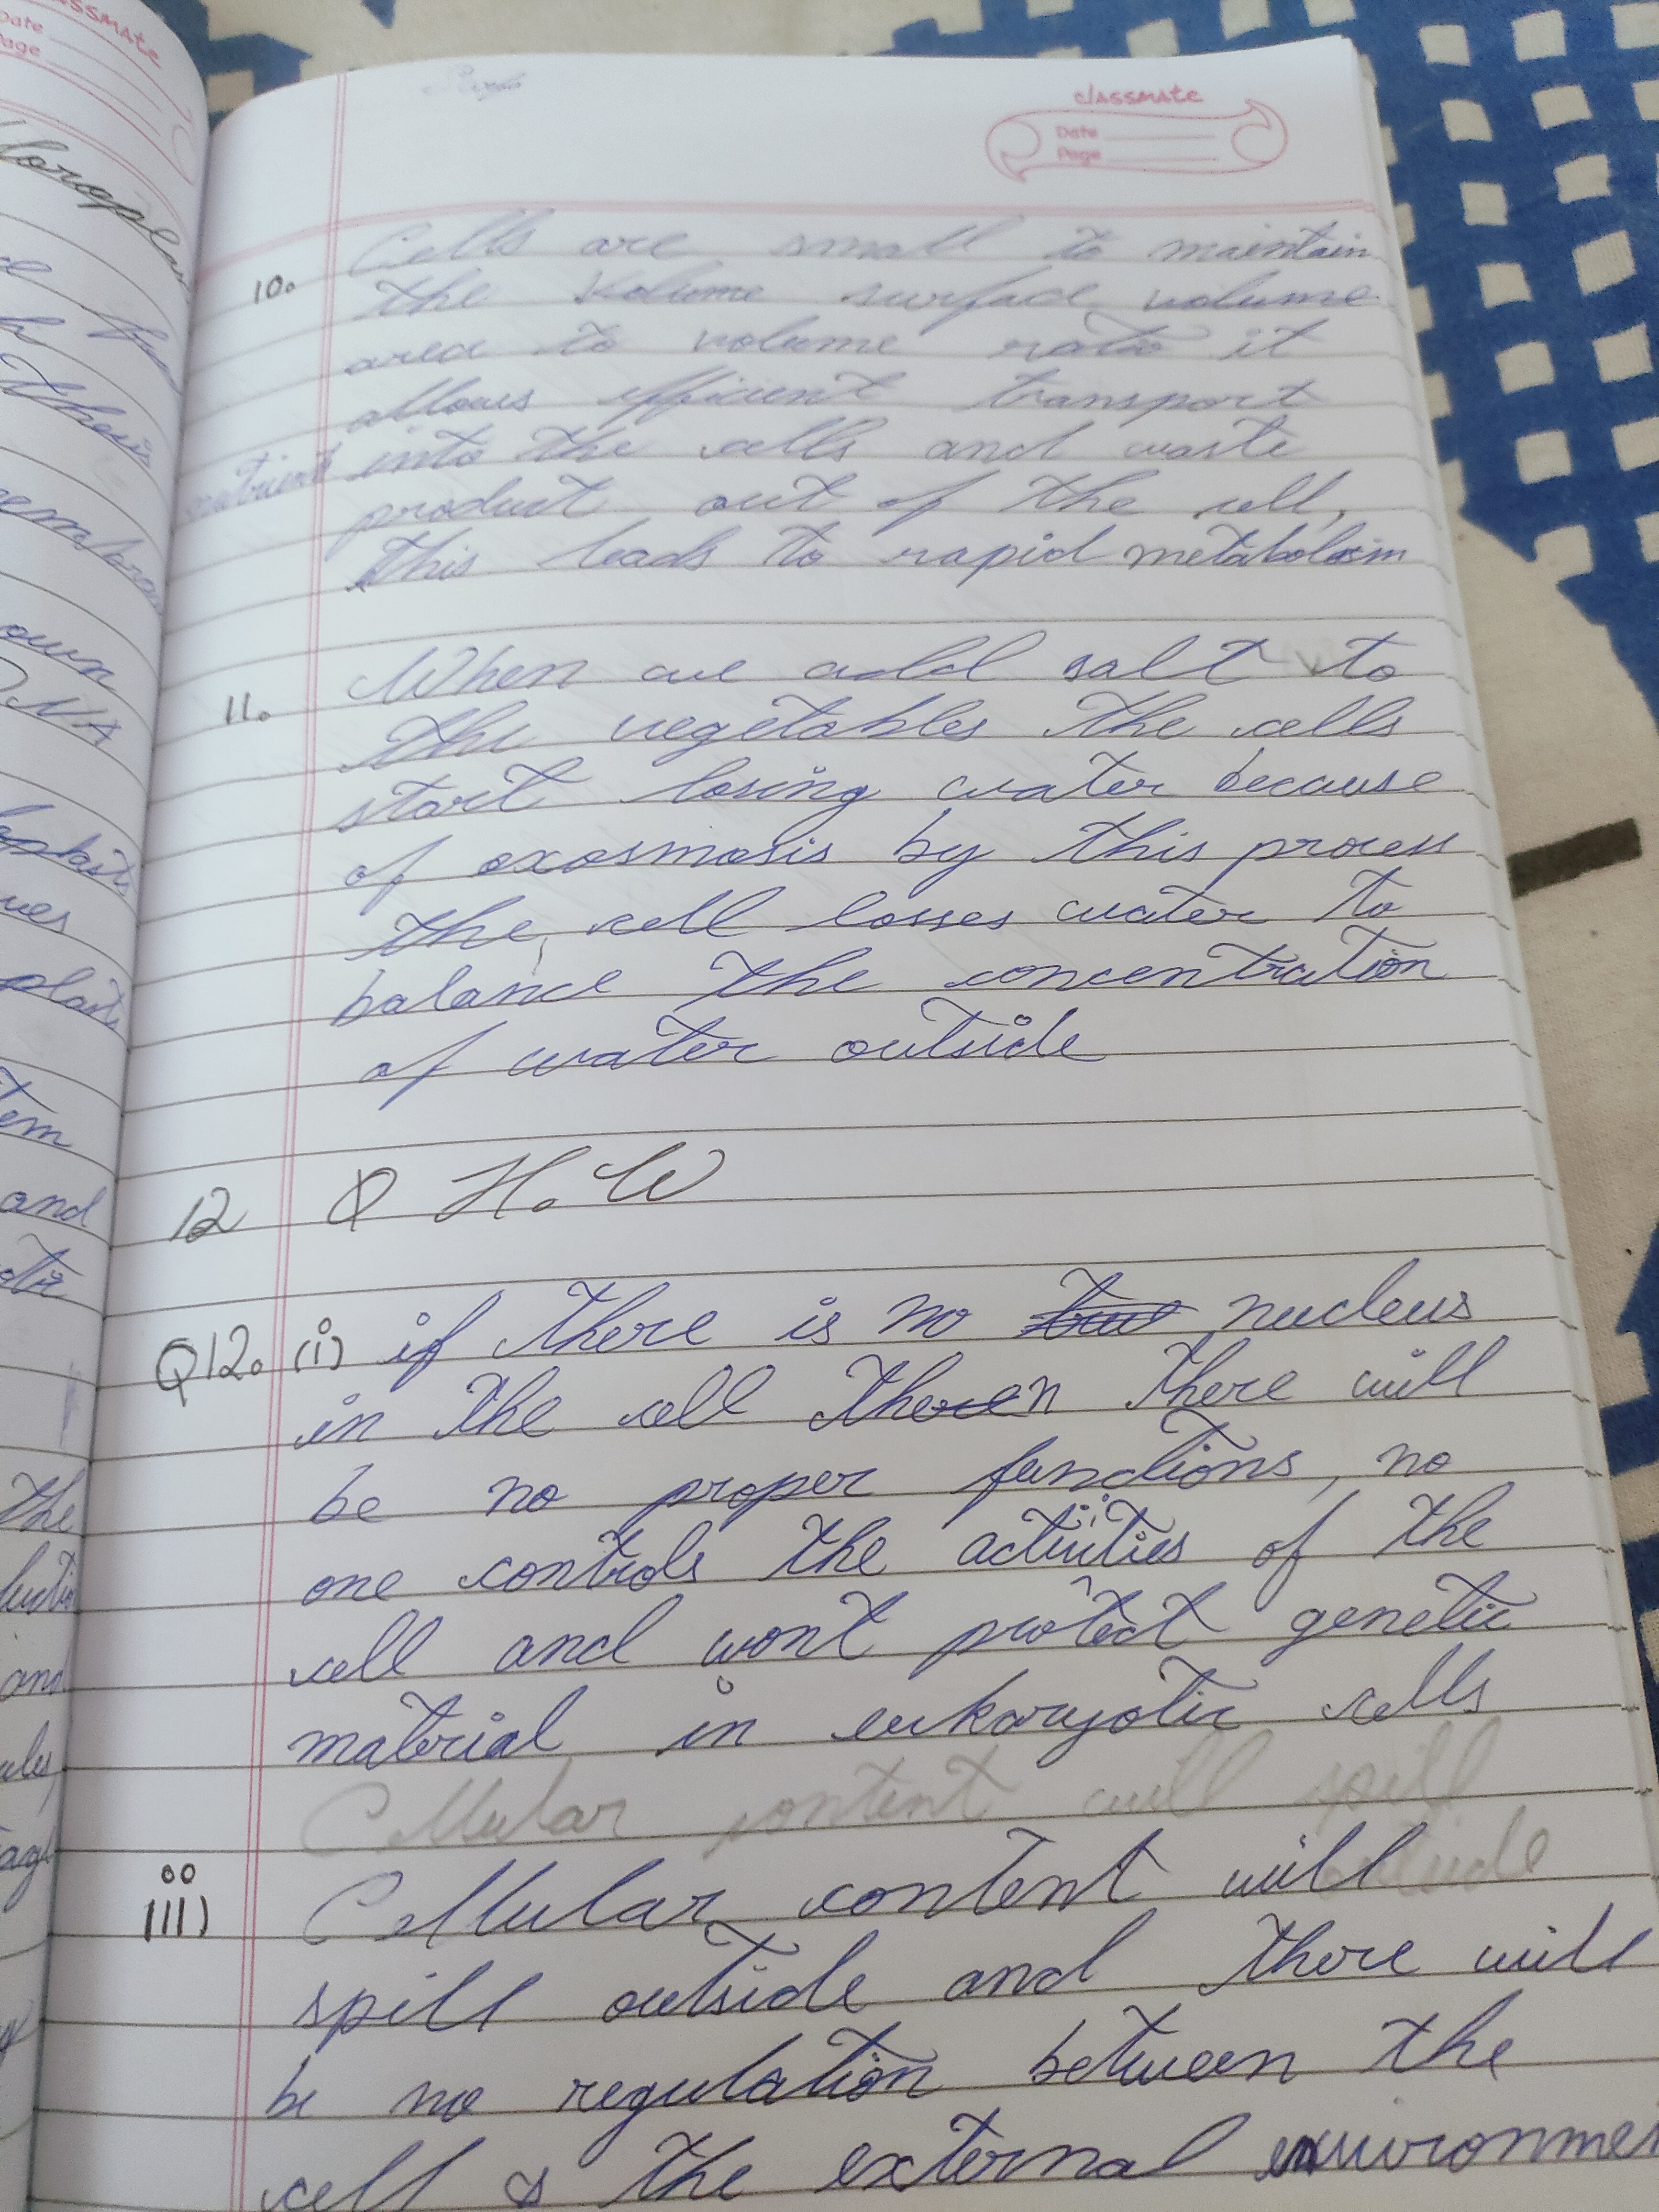 classmate
Date
Page
10. Cells are small to maintain
the volume surface volume
area to volume ratio it
allows efficient transport
nutrient into the cells and waste
product out of the cell,
This leads to rapid metabolism
11. When we add salt to
the vegetables the cells
start losing water because
of exosmosis by this process
the cell losses water to
balance the concentration
of water outside
12 Q H.W
Q12. (i) if there is no nucleus
in the cell then there will
be no proper functions, no
one controls the activities of the
cell and wont protect genetic
material in eukaryotic cells
Cellular content will spill
outside
iii) Cellular content will
spill outside and there will
be no regulation between the
cell & the external environmen
classmate
Date
Page
own
DNA
and
the
and